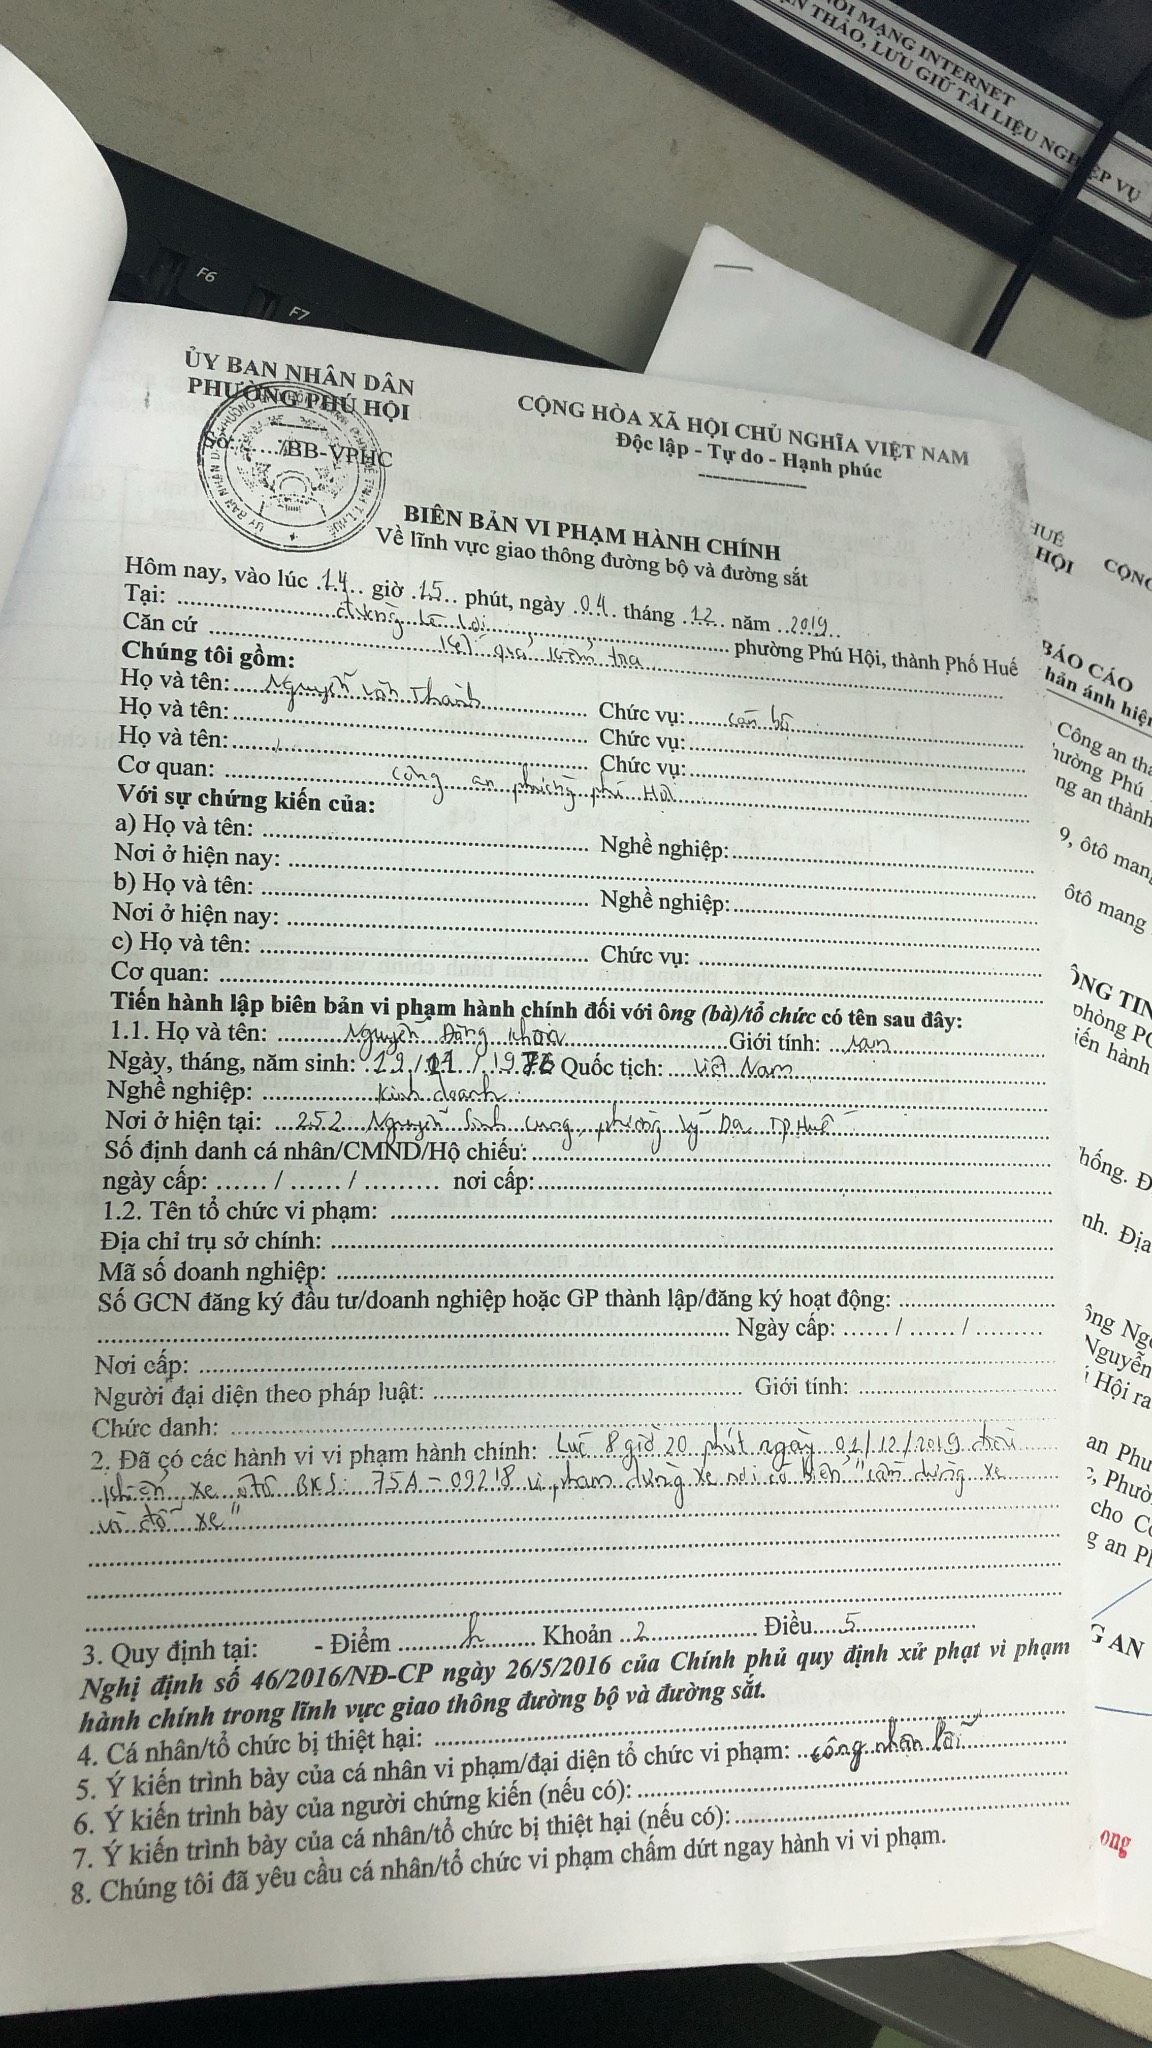 ỘI MẠNG INTERNET
N THẢO, LƯU GIỮ TÀI LIỆU NGHIỆP VỤ
F6
F7
ỦY BAN NHÂN DÂN
PHƯỜNG PHÚ HỘI
Số:....../BB-VPHC
CỘNG HÒA XÃ HỘI CHỦ NGHĨA VIỆT NAM
Độc lập - Tự do - Hạnh phúc
BIÊN BẢN VI PHẠM HÀNH CHÍNH
Về lĩnh vực giao thông đường bộ và đường sắt
Hôm nay, vào lúc 14 giờ 15 phút, ngày 04 tháng 12 năm 2019
Tại: đường Lê Lợi, phường Phú Hội, thành Phố Huế
Căn cứ kết quả kiểm tra
Chúng tôi gồm:
Họ và tên: Nguyễn Văn Thành Chức vụ: cán bộ
Họ và tên: Chức vụ:
Họ và tên: Chức vụ:
Cơ quan: công an phường phú Hội
Với sự chứng kiến của:
a) Họ và tên: Nghề nghiệp:
Nơi ở hiện nay:
b) Họ và tên: Nghề nghiệp:
Nơi ở hiện nay:
c) Họ và tên: Chức vụ:
Cơ quan:
Tiến hành lập biên bản vi phạm hành chính đối với ông (bà)/tổ chức có tên sau đây:
1.1. Họ và tên: Nguyễn Đăng Khoa Giới tính: nam
Ngày, tháng, năm sinh: Quốc tịch: Việt Nam
Nghề nghiệp: Kinh doanh
Nơi ở hiện tại: 252 Nguyễn Sinh Cung, phường Vỹ Dạ, TP Huế
Số định danh cá nhân/CMND/Hộ chiếu:
ngày cấp: ...... / ...... / ......... nơi cấp:
1.2. Tên tổ chức vi phạm:
Địa chỉ trụ sở chính:
Mã số doanh nghiệp:
Số GCN đăng ký đầu tư/doanh nghiệp hoặc GP thành lập/đăng ký hoạt động:
Ngày cấp: ...... / ...... / .........
Nơi cấp:
Người đại diện theo pháp luật: Giới tính:
Chức danh:
2. Đã có các hành vi vi phạm hành chính: Lúc 8 giờ 20 phút ngày 02/12/2019 điều
khiển xe ôtô BKS: 75A-09218 vi phạm dừng xe nơi có biển "cấm dừng xe
và đỗ xe"
3. Quy định tại: - Điểm h Khoản 2 Điều 5
Nghị định số 46/2016/NĐ-CP ngày 26/5/2016 của Chính phủ quy định xử phạt vi phạm
hành chính trong lĩnh vực giao thông đường bộ và đường sắt.
4. Cá nhân/tổ chức bị thiệt hại:
5. Ý kiến trình bày của cá nhân vi phạm/đại diện tổ chức vi phạm: công nhận lỗi
6. Ý kiến trình bày của người chứng kiến (nếu có):
7. Ý kiến trình bày của cá nhân/tổ chức bị thiệt hại (nếu có):
8. Chúng tôi đã yêu cầu cá nhân/tổ chức vi phạm chấm dứt ngay hành vi vi phạm.
HUẾ
HỘI CỘNG
BÁO CÁO
hản ánh hiện
Công an thà
hường Phú
ng an thành
9, ôtô mang
ôtô mang
ÔNG TIN
phòng PC
iến hành
hống. Đ
nh. Địa
ông Ngọ
Nguyễn
Hội ra
an Phư
, Phườ
cho Cô
g an P
G AN
ong